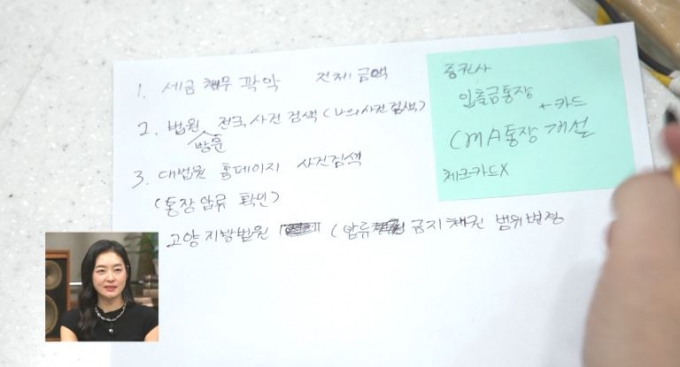 1. 세금 채무 파악 전체 금액
2. 법원 전국 사건 검색 (나의 사건 검색)
방문
3. 대법원 홈페이지 사건검색
(통장 압류 확인)
고양 지방법원 (압류 금지 채권 범위 변경
증권사
입출금통장
← 카드
CMA통장 개설
체크카드X